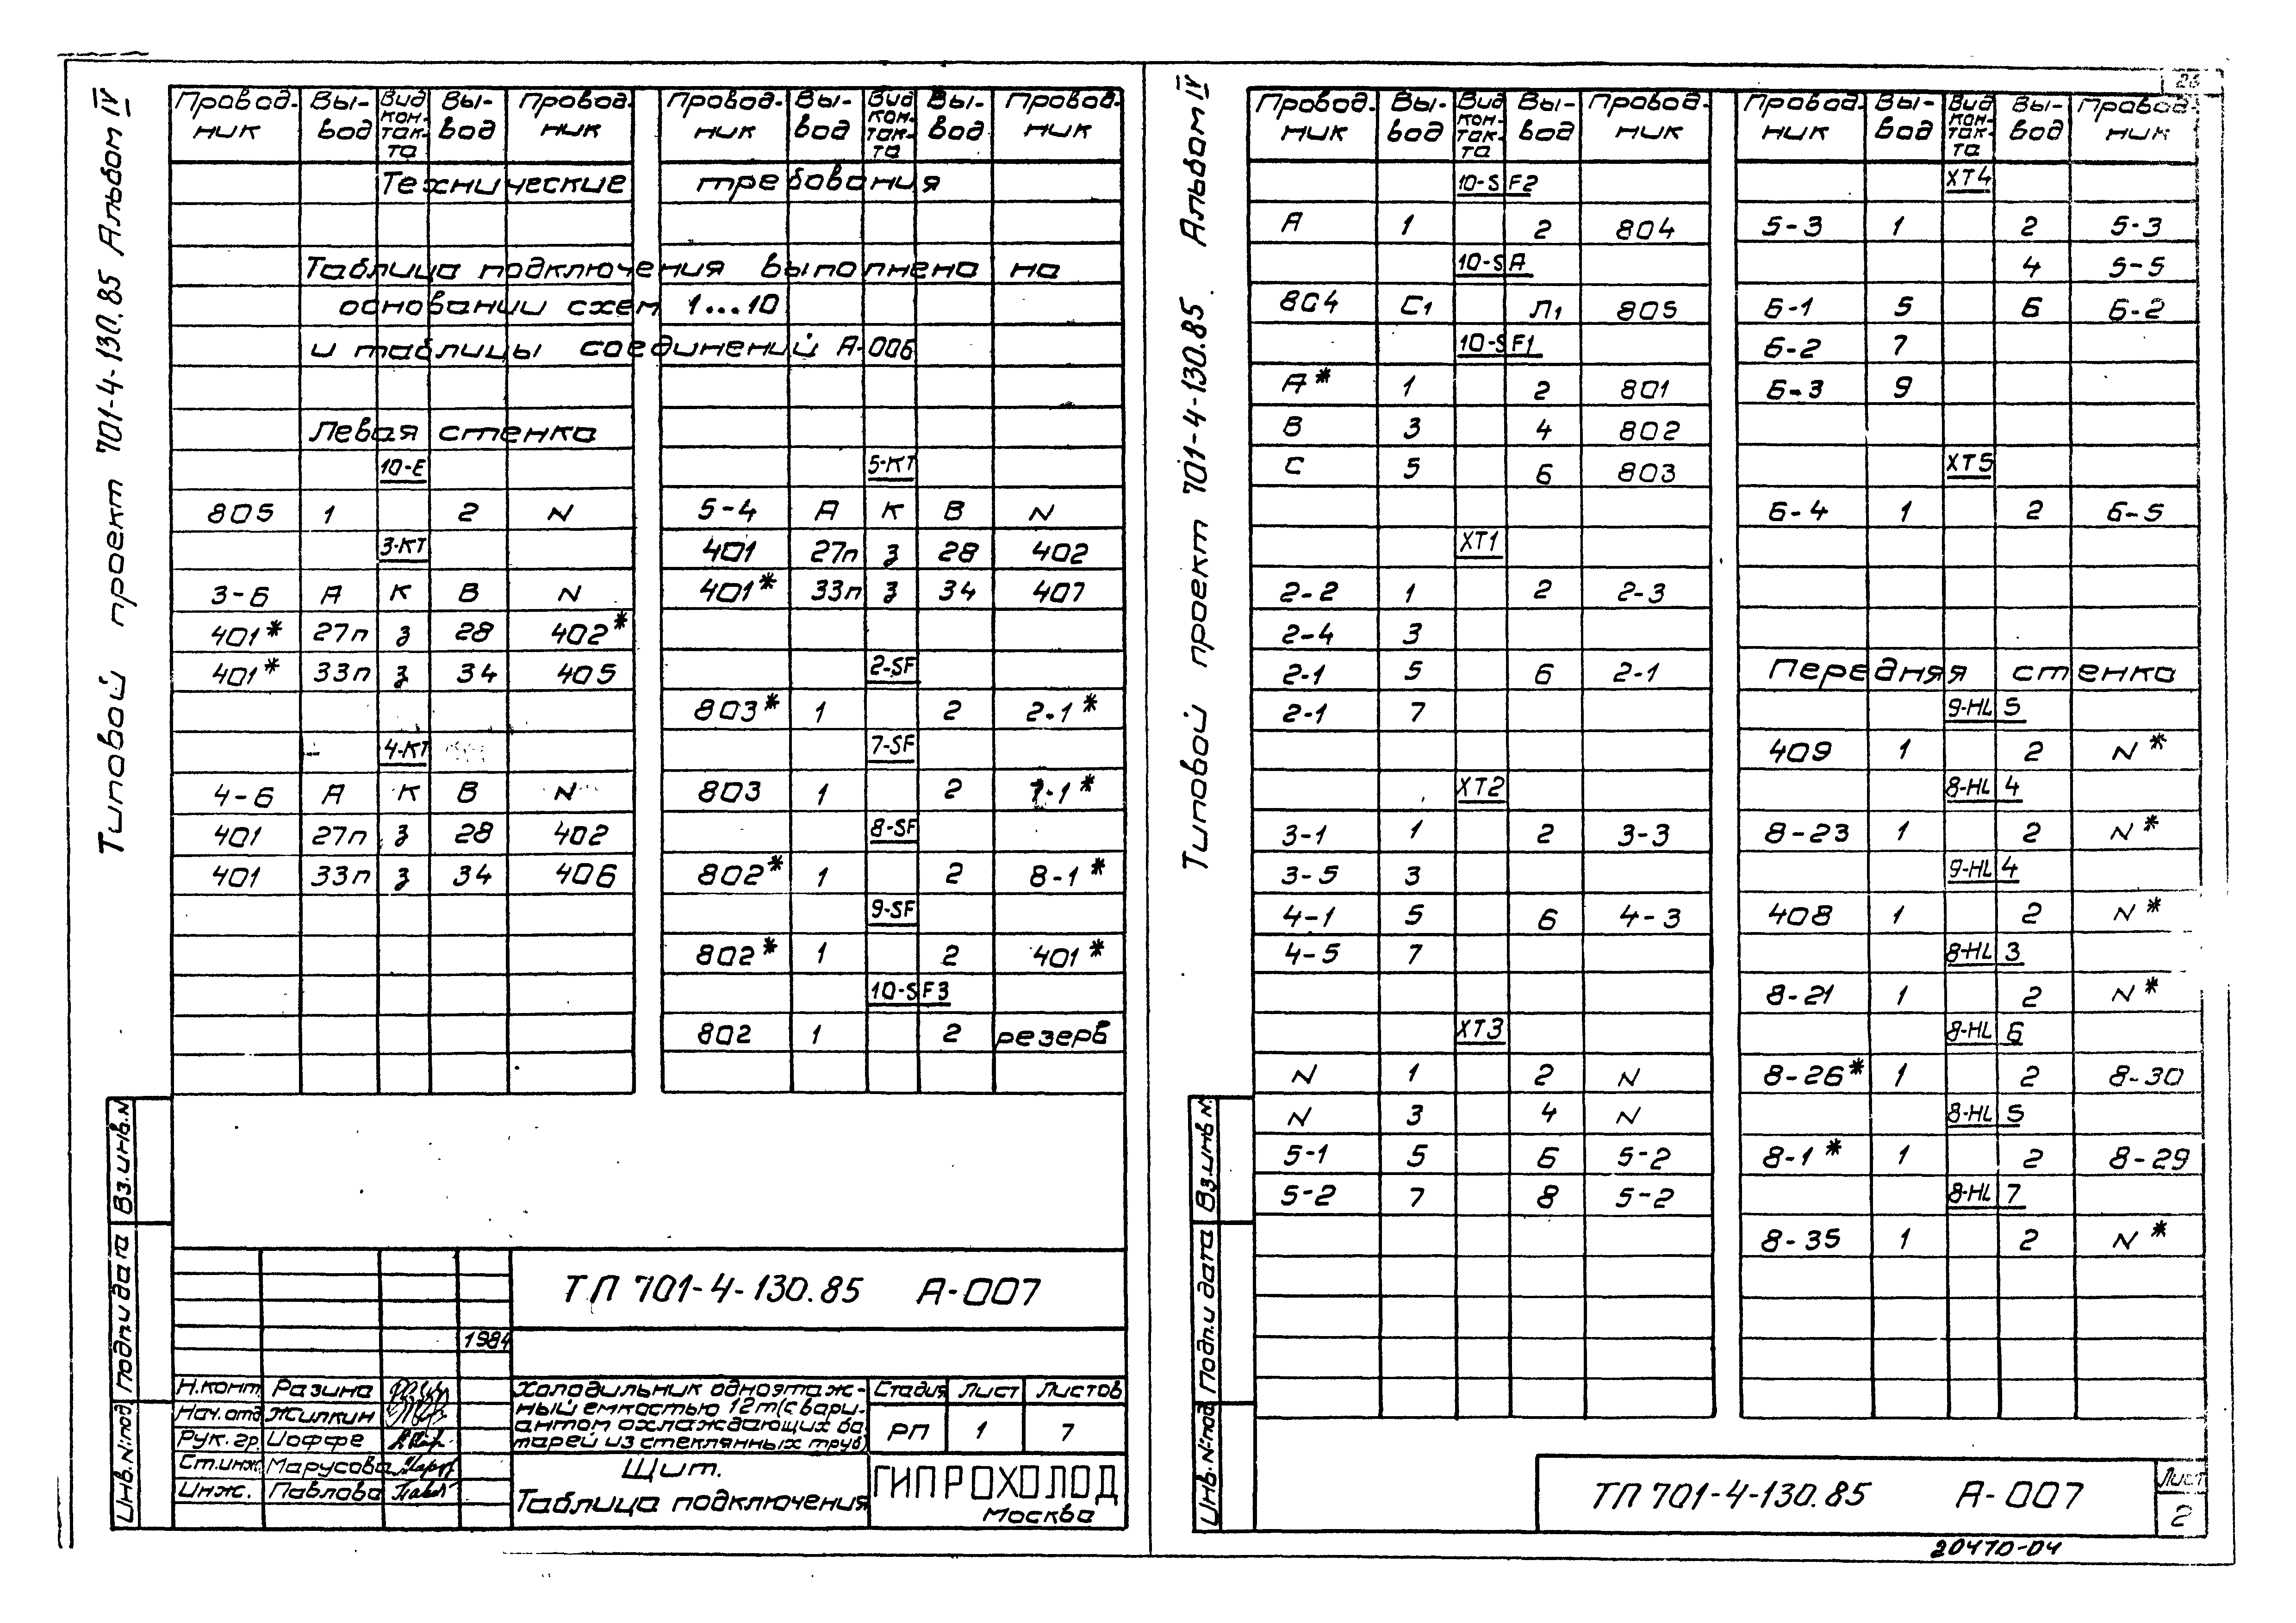 Типовой проект 701-4-130.85 Альбом IV
Провод- Вы- Вид Вы- Провод- Провод- Вы- Вид Вы- Провод-
ник вод кон- вод ник ник вод кон- вод ник
так- так-
та та
Технические требования
Таблица подключения выполнена на
основании схем 1...10
и таблицы соединений А-006
Левая стенка
10-Е
805 1 2 N
3-КТ
3-6 А К В N
401* 27п з 28 402*
401* 33п з 34 405
4-КТ
4-6 А К В N
401 27п з 28 402
401 33п з 34 406
5-КТ
5-4 А К В N
401 27п з 28 402
401* 33п з 34 407
2-SF
803* 1 2 2-1*
7-SF
803 1 2 7-1*
8-SF
802* 1 2 8-1*
9-SF
802* 1 2 401*
10-SF3
802 1 2 резерв
Инв.№под. Подп.и дата Вз.инв.N
ТП 701-4-130.85 А-007
1984
Н.конт. Разина
Нач.отд Жилкин
Рук.гр. Иоффе
Ст.инж. Марусова
Инж. Павлова
Холодильник одноэтаж-
ный емкостью 12т(с вари-
антом охлаждающих ба-
тарей из стеклянных труб)
Стадия Лист Листов
РП 1 7
Щит.
Таблица подключения
ГИПРОХОЛОД
Москва
26
Типовой проект 701-4-130.85. Альбом IV
Провод- Вы- Вид Вы- Провод- Провод- Вы- Вид Вы- Провод-
ник вод кон- вод ник ник вод кон- вод ник
так- так-
та та
10-SF2
А 1 2 804
10-SA
804 С1 Л1 805
10-SF1
А* 1 2 801
В 3 4 802
С 5 6 803
ХТ1
2-2 1 2 2-3
2-4 3
2-1 5 6 2-1
2-1 7
ХТ2
3-1 1 2 3-3
3-5 3
4-1 5 6 4-3
4-5 7
ХТ3
N 1 2 N
N 3 4 N
5-1 5 6 5-2
5-2 7 8 5-2
ХТ4
5-3 1 2 5-3
4 5-5
6-1 5 6 6-2
6-2 7
6-3 9
ХТ5
6-4 1 2 6-5
Передняя стенка
9-HL5
409 1 2 N*
8-HL4
8-23 1 2 N*
9-HL4
408 1 2 N*
8-HL3
8-21 1 2 N*
8-HL6
8-26* 1 2 8-30
8-HL5
8-1* 1 2 8-29
8-HL7
8-35 1 2 N*
Инв.№под Подп.и дата Вз.инв N.
ТП 701-4-130.85 А-007
Лист
2
20470-04